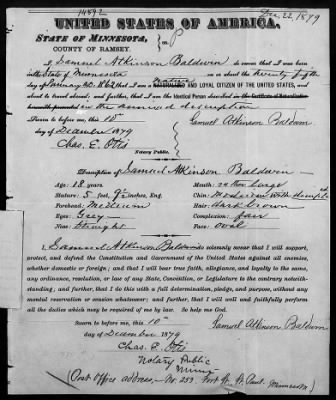 14892
Dec. 22, 1879
UNITED STATES OF AMERICA,
STATE OF MINNESOTA,
COUNTY OF RAMSEY.
I Samuel Atkinson Baldwin do swear that I was born
in the State of Minnesota on or about the day of
January A.D. 1862 that I was a AND LOYAL CITIZEN OF THE UNITED STATES, and
about to travel abroad; and further, that I am the Identical Person described in the Certificate of Naturalization
herewith presented in the annexed description
Sworn to before me, this 10th
day of December 1879
Samuel Atkinson Baldwin
Chas. E. Otis
Notary Public.
Description of Samuel Atkinson Baldwin
Age: 18 years
Mouth: rather large
Stature: 5 feet, 9½ inches, Eng.
Chin: Medium with dimple
Forehead: Medium
Hair: dark brown
Eyes: Grey
Complexion: fair
Nose: Straight
Face: oval
I, Samuel Atkinson Baldwin solemnly swear that I will support,
protect, and defend the Constitution and Government of the United States against all enemies,
whether domestic or foreign; and that I will bear true faith, allegiance, and loyalty to the same,
any ordinance, resolution, or law of any State, Convention, or Legislature to the contrary notwith-
standing; and further, that I do this with a full determination, pledge, and purpose, without any
mental reservation or evasion whatsoever; and further, that I will well and faithfully perform
all the duties which may be required of me by law. So help me God.
Sworn to before me, this 10
day of December 1879
Samuel Atkinson Baldwin
Chas. E. Otis
Notary Public
Minn
(Post Office address - No. 253 Fort St. St. Paul. Minnesota)